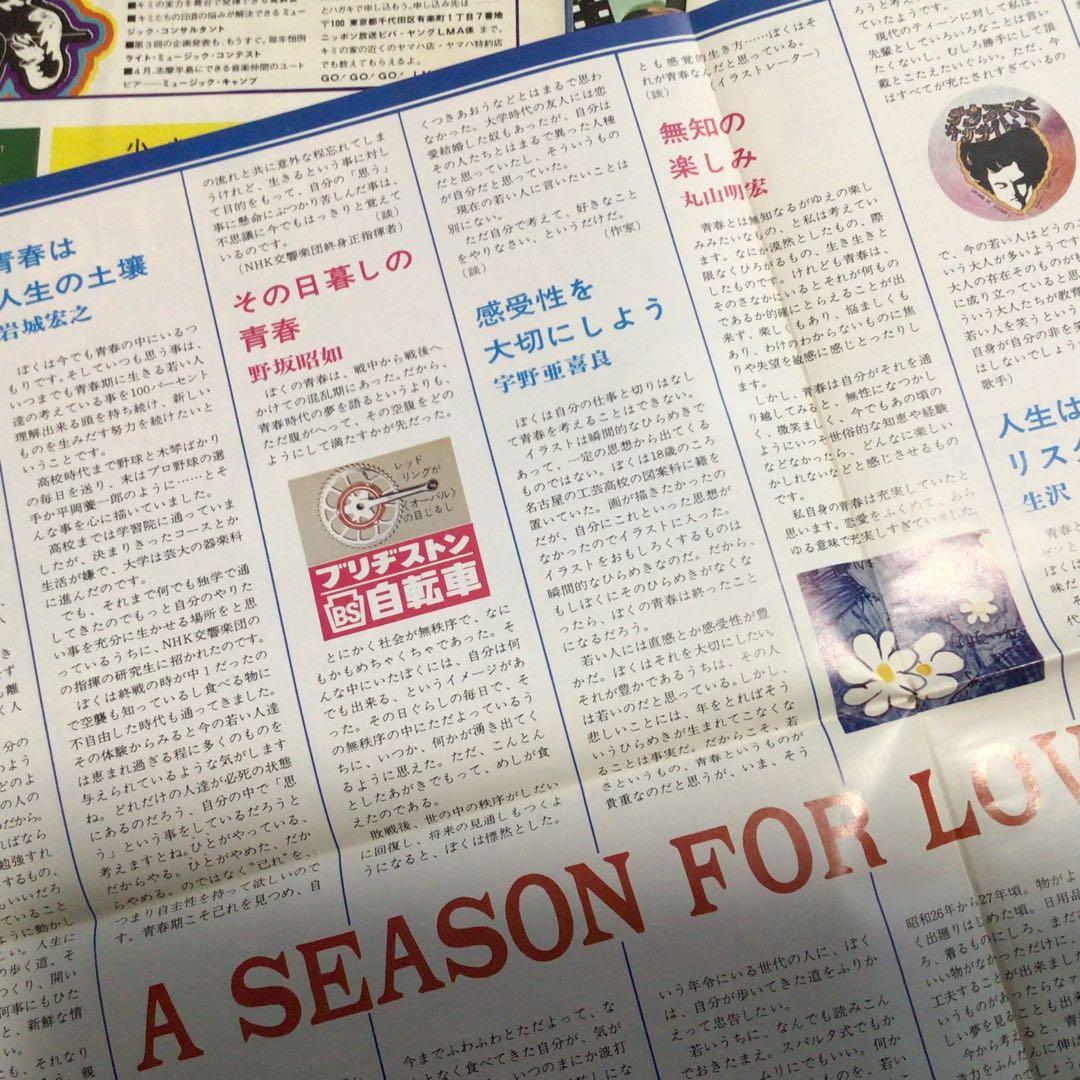 ■キミの実力を舞台で発揮できる発表会
■キミたちの日頃の悩みが解決できるミュー
ジック・コンサルタント
■第3回の企画発表も、もうすぐ。毎年恒例
ライト・ミュージック・コンテスト
■4月、志摩半島にできる音楽仲間のユート
ピア──ミュージック・キャンプ
とハガキで申し込もう。申し込み先は
〒100 東京都千代田区有楽町1丁目7番地
ニッポン放送ビバ・ヤングLMA係 まで。
キミの家の近くのヤマハ店・ヤマハ特約店
でも教えてもらえるよ。
GO! GO! GO!
青春は
人生の土壌
岩城宏之
ぼくは今でも青春の中にいるつ
もりです。そしていつも思う事は、
いつまでも青春期に生きる若い人
達の考えている事を100パーセント
理解出来る頭を持ち続け、新しい
ものを生みだす努力を続けたいと
いうことです。
高校時代まで野球と木琴ばかり
の毎日を送り、末はプロ野球の選
手か平岡養一郎のように……とそ
んな事を心に描いていました。
高校までは学習院に通っていま
したが、決まりきったコースとか
生活が嫌で、大学は芸大の器楽科
に進んだのです。
でも、それまで何でも独学で通
してきたのでもっと自分のやりた
い事を充分に生かせる場所をと思
っているうちに、NHK交響楽団の
の指揮の研究生に招かれたのです。
ぼくは終戦の時が中1だったの
で空襲も知っているし食べる物に
不自由した時代も通ってきました。
その体験からみると今の若い人達
は恵まれ過ぎる程に多くのものを
与えられているような気がします
ね。どれだけの人達が必死の状態
にあるのだろう、自分の中で「思
う」という事をしているだろうと
考えますとね。ひとがやっている、
だからやる。ひとがやめた、だか
らやめる。のではなく“己れ”を、
つまり自主性を持って欲しいので
す。青春期こそ己れを見つめ、自
の流れと共に意外な程忘れてしま
うけれど、生きるという事に対し
て目的をもって、自分の「思う」
事に懸命にぶつかり苦しんだ事は、
不思議に今でもはっきりと覚えて
いるのです。
(談)
(NHK交響楽団終身正指揮者)
その日暮しの
青春
野坂昭如
ぼくの青春は、戦中から戦後へ
かけての混乱期にあった。だから、
青春時代の夢を語るというよりも、
ただ腹がへって、その空腹をどの
ようにして満たすかが先だった。
レッド
リングが
(オーバル)
の目じるし
ブリヂストン
BS 自転車
とにかく社会が無秩序で、なに
もかもめちゃくちゃであった。そ
んな中にいたぼくには、自分は何
でも出来る、というイメージがあ
った。
その日ぐらしの毎日で、そ
の無秩序の中にただよっているう
ちに、いつか、何かが湧き出てく
るように思えた。ただ、こんとん
としたあがきでもって、めしが食
えたのである。
敗戦後、世の中の秩序がしだい
に回復し、将来の見通しもつくよ
うになると、ぼくは慄然とした。
くつきあおうなどとはまるで思わ
なかった。大学時代の友人には恋
愛結婚した奴もあったが、自分は
その人たちとはまるで異った人種
だと思っていたし、そういうもの
が自分だと思っていた。
現在の若い人に言いたいことは
別にない。
ただ自分で考えて、好きなこと
をやりなさい、というだけだ。
(談)
(作家)
感受性を
大切にしよう
宇野亜喜良
ぼくは自分の仕事と切りはなし
て青春を考えることはできない。
イラストは瞬間的なひらめきで
あって、一定の思想から出てくる
ものではない。ぼくは18歳のころ
名古屋の工芸高校の図案科に籍を
置いていた。画が描きたかったの
だが、自分にこれといった思想が
なかったのでイラストに入った。
イラストをおもしろくするものは
瞬間的なひらめきなのだ。だから、
もしぼくにそのひらめきがなくな
ったら、ぼくの青春は終ったこと
になるだろう。
若い人には直感とか感受性が豊
かだ。ぼくはそれを大切にしたい。
それが豊かであるうちは、その人
は若いのだと思っている。しかし、
悲しいことには、年をとればそう
いうひらめきが生まれてこなくな
ることは事実だ。だからこそ、若
さというもの、青春というものが
貴重なのだと思うが、いま、そう
とも感覚的生き方……ぼくはそ
れが青春なんだと思っている。
(談)
(イラストレーター)
無知の
楽しみ
丸山明宏
青春とは無知なるがゆえの楽し
みみたいなもの、と私は考えてい
ます。なにか漠然としたもの、際
限なくひろがるもの、生き生きと
したものです。けれども青春は、
そのさなかにいるとそれが何もの
であるか的確にとらえることが出
来ず、楽しくもあり、悩ましくも
あり、わけのわからないものに焦
りや失望を敏感に感じとったりし
ます。
しかし、青春は自分がそれを通
り越してみると、無性になつかし
く、微笑ましく、今でもあの頃の
ようにいっそ世俗的な知恵や経験
などなかったら、どんなに楽しい
かしれないなどと感じさせるもの
です。
私自身の青春は充実していたと
思います。恋愛をふくめて、あら
ゆる意味で充実しすぎていました。
現代のティーンに対して私は、
先輩としていろいろなことは言い
たくないし、むしろ勝手にして頂
戴とこたえたいぐらい。ただ、今
はすべてが充たされすぎているの
で、今の若い人はどうの
いう大人が多いようです
大人の存在そのものが社
に成り立っていると思
ういう大人たちが教育
若い人を笑うという
自身が自分の非を笑
はしないでしょう
歌手)
人生は
リス
生沢
A SEASON FOR LOV
今までふわふわとただよって、な
となく食べてきた自分が、気が
いう年令にいる世代の人に、ぼく
は、自分が歩いてきた道をふりか
えって忠告したい。
若いうちに、なんでも読みこん
でおきたまえ。スパルタ式でもか
昭和26年から27年頃。物がよ
く出廻りはじめた頃。日用品
ろ、着るものにしろ、まだ
いい物がなかっただけに、
工夫することが出来まし
いうものがあったらなァ
しい夢を見ることも出来
今から考えると、青